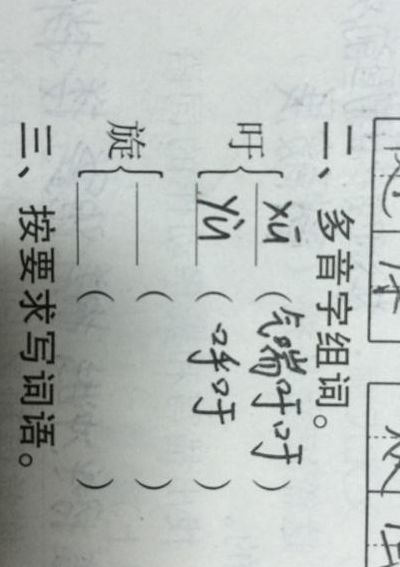 二、多音字组词。
吁 xū (气喘吁吁)
yù (呼吁)
旋 ( )
( )
三、按要求写词语。